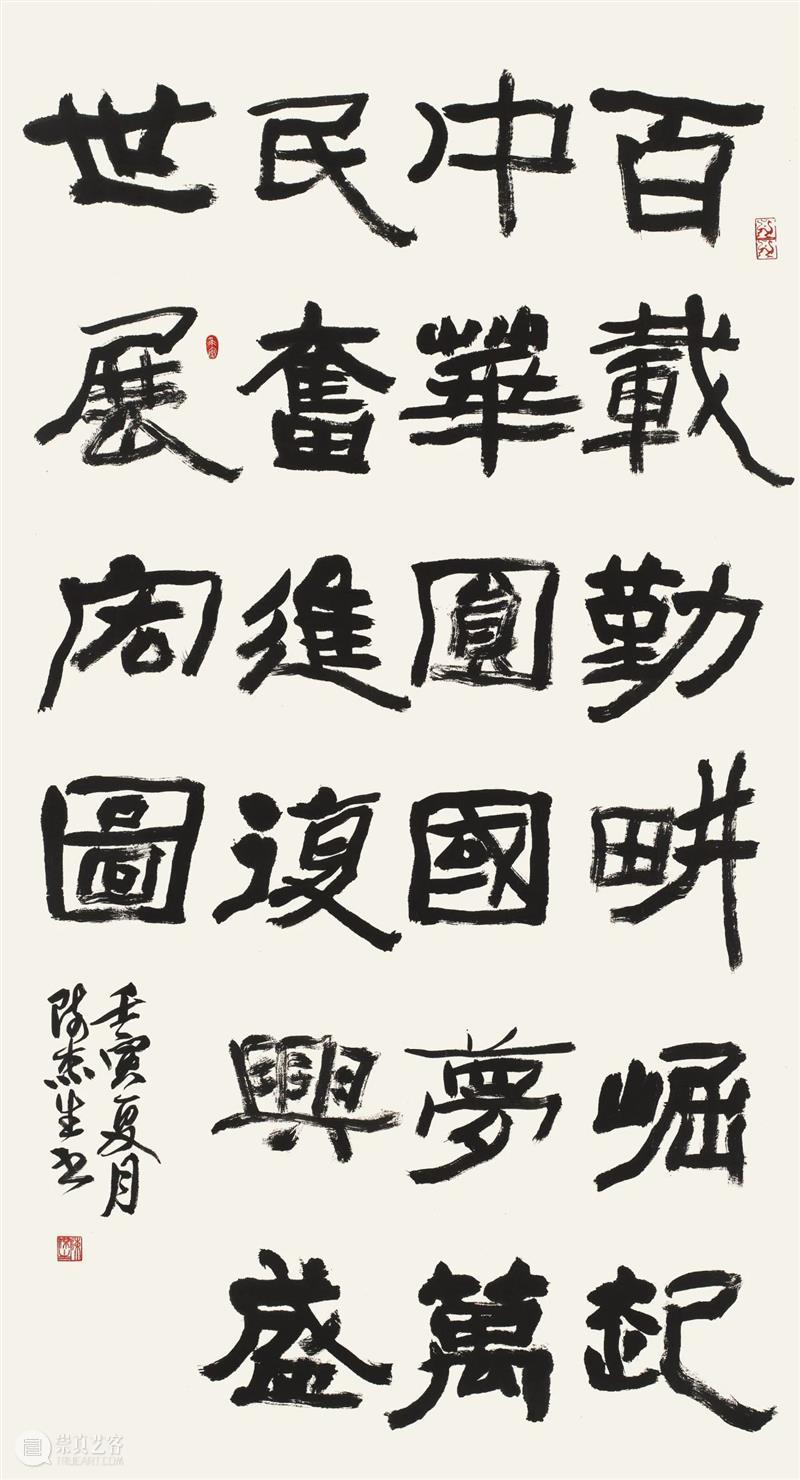 百載勤畊崛起
中華圓國夢萬
民奮進復興盛
世展宏圖
壬寅夏月
陈杰生书
崇真艺客
TRUEART.COM